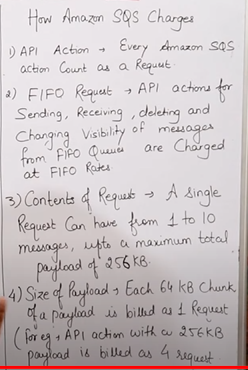 How Amazon SQS Charges
1) API Action → Every Amazon SQS
action Count as a Request.
2) FIFO Request → API actions for
Sending, Receiving, deleting and
Changing Visibility of messages
from FIFO Queues are Charged
at FIFO Rates
3) Contents of Request → A single
Request Can have from 1 to 10
messages, upto a maximum total
payload of 256 KB.
4) Size of Payload → Each 64 KB Chunk
of a payload is billed as 1 Request
(for eg → API action with a 256KB
payload is billed as 4 request